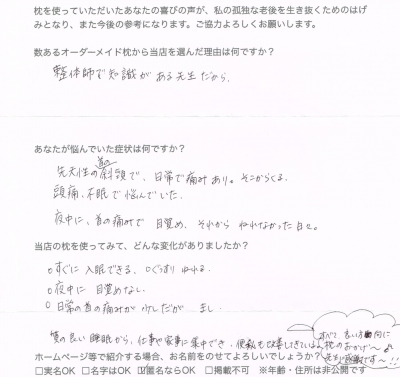 枕を使っていただいたあなたの喜びの声が、私の孤独な老後を生き抜くためのはげ
みとなり、また今後の参考になります。ご協力よろしくお願いします。
数あるオーダーメイド枕から当店を選んだ理由は何ですか?
整体師で知識がある先生だから。
あなたが悩んでいた症状は何ですか?
先天性の首の斜頸で、日常で痛みあり。そこからくる、
頭痛、不眠で悩んでいた。
夜中に、首の痛みで目覚め、それからねれなかった日々。
当店の枕を使ってみて、どんな変化がありましたか?
○すぐに入眠できる、○ぐっすりねれる。
○夜中に目覚めない。
○日常の首の痛みが少しだが まし
質の良い睡眠から、仕事や家事に集中でき、便秘も改善してきている
すべて、良い方向に
枕のおかげ〜
先生に感謝です〜!!
ホームページ等で紹介する場合、お名前をのせてよろしいでしょうか?
□実名OK □名字はOK ☑匿名ならOK □掲載不可 ※年齢・住所は非公開です